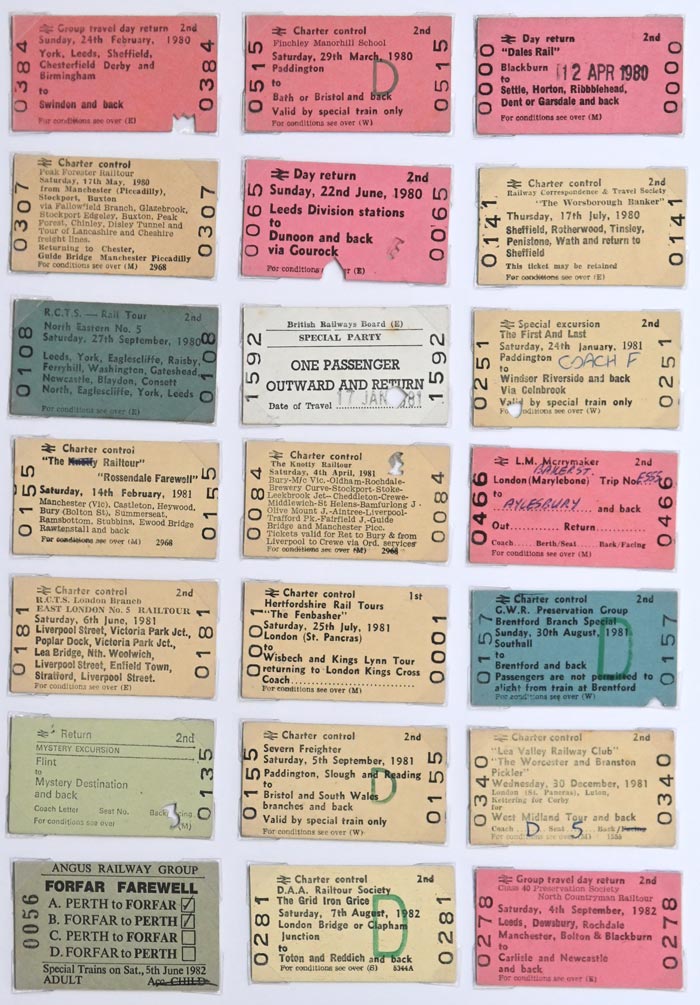 Group travel day return 2nd
Sunday, 24th February, 1980
York, Leeds, Sheffield,
Chesterfield Derby and
Birmingham
to
Swindon and back
For conditions see over (E)
0384
0384
Charter control 2nd
Finchley Manorhill School
Saturday, 29th March, 1980
Paddington
to
Bath or Bristol and back
Valid by special train only
For conditions see over (W)
D
0515
0515
Day return 2nd
"Dales Rail"
Blackburn 12 APR 1980
to
Settle, Horton, Ribbblehead,
Dent or Garsdale and back
For conditions see over (M)
0000
0000
Charter control 2nd
Peak Forester Railtour
Saturday, 17th May, 1980
from Manchester (Piccadilly),
Stockport, Buxton
via Fallowfield Branch, Glazebrook,
Stockport Edgeley, Buxton, Peak
Forest, Chinley, Disley Tunnel and
Tour of Lancashire and Cheshire
freight lines.
Returning to Chester,
Guide Bridge Manchester Piccadilly
For conditions see over (M) 2968
0307
0307
Day return 2nd
Sunday, 22nd June, 1980
Leeds Division stations
to
Dunoon and back
via Gourock
For conditions see over (E)
0065
0065
Charter control 2nd
Railway Correspondence & Travel Society
"The Worsborough Banker"
Thursday, 17th July, 1980
Sheffield, Rotherwood, Tinsley,
Penistone, Wath and return to
Sheffield
This ticket may be retained
For conditions see over (E)
0141
0141
R.C.T.S. — Rail Tour 2nd
North Eastern No. 5
Saturday, 27th September, 1980
Leeds, York, Eaglescliffe, Raisby,
Ferryhill, Washington, Gateshead,
Newcastle, Blaydon, Consett
North, Eaglescliffe, York, Leeds
For conditions see over (E)
0108
0108
British Railways Board (E)
SPECIAL PARTY
ONE PASSENGER
OUTWARD AND RETURN
Date of Travel 17 JAN 1981
1592
1592
Special excursion 2nd
The First And Last
Saturday, 24th January, 1981
Paddington COACH F
to
Windsor Riverside and back
Via Colnbrook
Valid by special train only
For conditions see over (W)
0251
0251
Charter control 2nd
"The Knotty Railtour"
"Rossendale Farewell"
Saturday, 14th February, 1981
Manchester (Vic), Castleton, Heywood,
Bury (Bolton St), Summerseat,
Ramsbottom, Stubbins, Ewood Bridge
Rawtenstall and back
For conditions see over (M) 2968
0155
0155
Charter control 2nd
The Knotty Railtour
Saturday, 4th April, 1981
Bury-M/c Vic.-Oldham-Rochdale-
Brewery Curve-Stockport-Stoke-
Leekbrook Jct-Cheddleton-Crewe-
Middlewich-St Helens-Bamfurlong J
Olive Mount J.-Aintree-Liverpool-
Trafford Pk.-Fairfield J.-Guide
Bridge and Manchester Picc.
Tickets valid for Ret to Bury & from
Liverpool to Crewe via Ord. services
For conditions see over (M) 2968
0084
0084
L.M. Merrymaker 2nd
BAKER ST
London (Marylebone) Trip No. E555
to
AYLESBURY and back
Out Return
Coach Berth/Seat Back/Facing
For conditions see over (M)
0466
0466
Charter control 2nd
R.C.T.S. London Branch
EAST LONDON No. 5 RAILTOUR
Saturday, 6th June, 1981
Liverpool Street, Victoria Park Jct.,
Poplar Dock, Victoria Park Jct.,
Lea Bridge, Nth. Woolwich,
Liverpool Street, Enfield Town,
Stratford, Liverpool Street.
For conditions see over (E)
0181
0181
Charter control 1st
Hertfordshire Rail Tours
"The Fenbasher"
Saturday, 25th July, 1981
London (St. Pancras)
to
Wisbech and Kings Lynn Tour
returning to London Kings Cross
Coach
For conditions see over (M)
0001
0001
Charter control 2nd
G.W.R. Preservation Group
Brentford Branch Special
Sunday, 30th August, 1981
Southall
to
Brentford and back
Passengers are not permitted to
alight from train at Brentford
For conditions see over (W)
D
0157
0157
Return 2nd
MYSTERY EXCURSION
Flint
to
Mystery Destination
and back
Coach Letter Seat No.
For conditions see over (M)
0135
Charter control 2nd
Severn Freighter
Saturday, 5th September, 1981
Paddington, Slough and Reading
to
Bristol and South Wales
branches and back
Valid by special train only
For conditions see over (W)
D
0155
0155
Charter control 2nd
"Lea Valley Railway Club"
"The Worcester and Branston
Pickler"
Wednesday, 30 December, 1981
London (St. Pancras), Luton,
Kettering for Corby
for
West Midland Tour and back
Coach D Seat 5 Back/Facing
For conditions see over (M)
0340
0340
ANGUS RAILWAY GROUP
FORFAR FAREWELL
A. PERTH to FORFAR
B. FORFAR to PERTH
C. PERTH to FORFAR
D. FORFAR to PERTH
Special Trains on Sat., 5th June 1982
ADULT Acc. CHILD
0056
Charter control 2nd
D.A.A. Railtour Society
The Grid Iron Grice
Saturday, 7th August, 1982
London Bridge or Clapham
Junction
to
Toton and Reddich and back
For conditions see over (S) 5344A
D
0281
0281
Group travel day return 2nd
Class 40 Preservation Society
North Countryman Railtour
Saturday, 4th September, 1982
Leeds, Dewsbury, Rochdale
Manchester, Bolton & Blackburn
to
Carlisle and Newcastle
and back
For conditions see over (E)
0278
0278